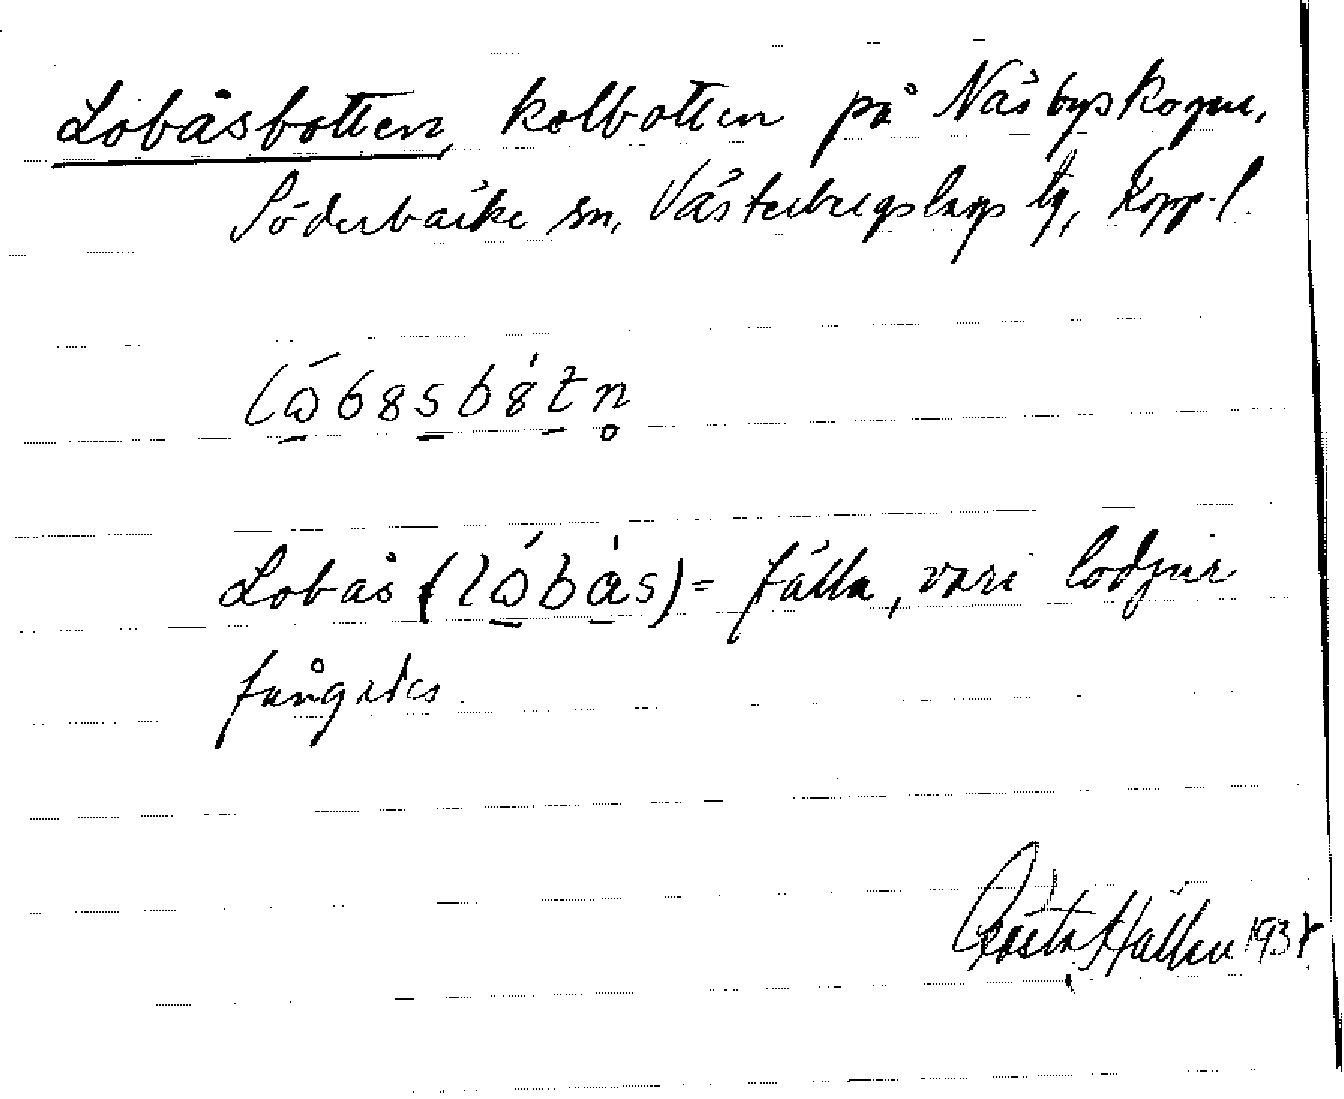 Lobåsbotten, kolbotten på Näsbyskogen,
Söderbärke sn, Västerbergslags tg, Kopp. l.
Lobås = fälla, vari lodjur
fångades.
Gösta Hällen